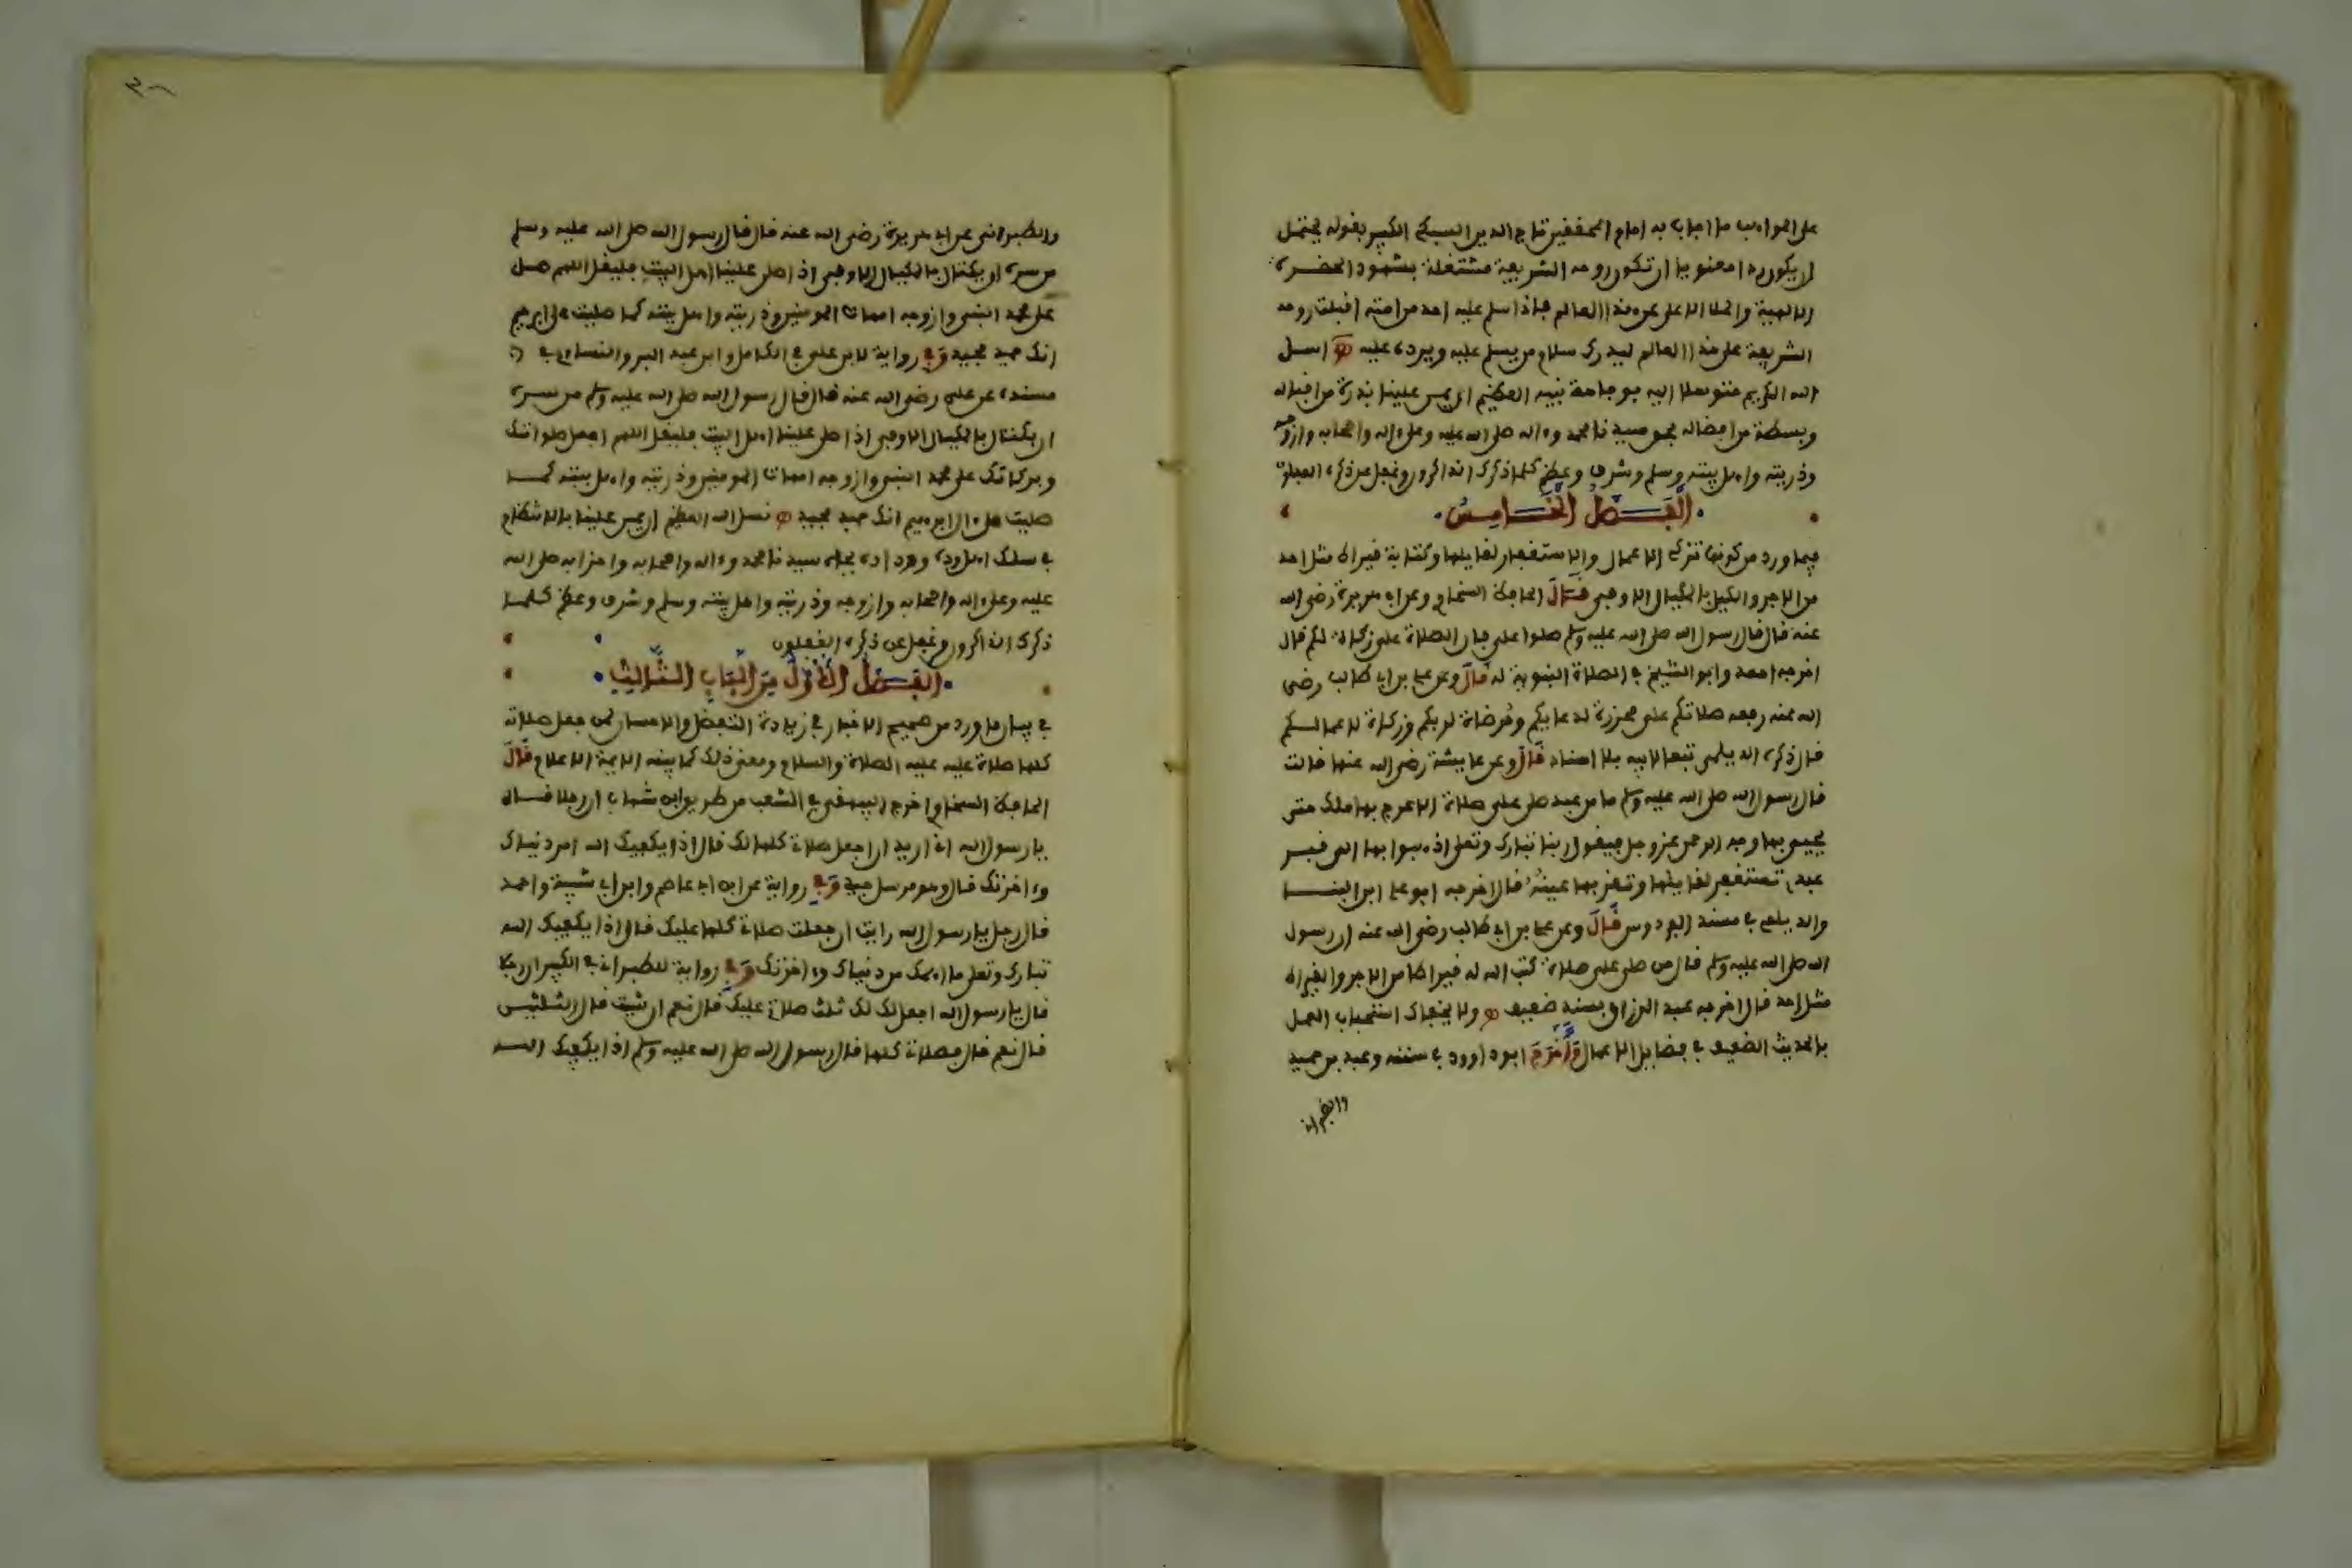 على الجواب ما اجاب به امام المحققين تاج الدين السبكي الكبير بقوله يحتمل
ان يكون ردا معنويا ان تكون روحه الشريعة مشتغلة بشهود الحضرة
الالهية والملا الاعلى عن هذا العالم فاذا سلم عليه احد من امته اقبلت روحه
الشريفة على هذا العالم ليدرك سلام من يسلم عليه ويرد عليه اسل
الله الكريم متوسلا اليه بوجاهة نبيه العظيم ان يمن علينا بذرة من اقباله
وبسطة من افضاله بجاه سيدنا محمد وءاله صلى الله عليه وعلى ءاله واصحابه وازوجه
وذريته واهل بيته وسلم وشرف وعظم كلما ذكرك الذاكرون وغفل عن ذكره الغفلون
الفصل الخامس
فيما ورد من كونها تزكي الاعمال والاستغفار لقايلها وكتابة قيراط مثل احد
من الاجر والكيل بالمكيال الاوفى قال الحافظ السخاوي وعن ابي هريرة رضي الله
عنه قال قال رسول الله صلى الله عليه وسلم صلوا علي فان الصلاة علي زكاة لكم قال
اخرجه احمد وابو الشيخ في الصلاة النبوية له قال وعن علي بن ابي طالب رضي
الله عنه رفعه صلاتكم علي محرزة لدعايكم ومرضاة لربكم وزكاة لاعمالكم
قال ذكره الديلمي تبعا لابيه بلا اسناد قال وعن عايشة رضي الله عنها قالت
قال رسول الله صلى الله عليه وسلم ما من عبد صلى علي صلاة الا عرج بها ملك حتى
يجيء بها وجه الرحمن عز وجل فيقول ربنا تبارك وتعلى اذهبوا بها الى قبر
عبدي تستغفر لقايلها وتقر بها عينه قال اخرجه ابو علي ابن البنا
والديلمي في مسند الفردوس قال وعن علي بن ابي طالب رضي الله عنه ان رسول
الله صلى الله عليه وسلم قال من صلى علي صلاة كتب الله له قيراطا من الاجر والقيراط
مثل احد قال اخرجه عبد الرزاق بسند ضعيف ولا يخفاك استحباب العمل
بالحديث الضعيف في فضايل الاعمال واخرج ابو داوود في سننه وعبد بن حميد
والطبراني
٣٦
والطبراني عن ابي هريرة رضي الله عنه قال قال رسول الله صلى الله عليه وسلم
من سره ان يكتال بالمكيال الاوفى اذا صلى علينا اهل البيت فليقل اللهم صل
على محمد النبي وازوجه امهات المومنين وذريته واهل بيته كما صليت على ابرهيم
انك حميد مجيد وفي رواية لابن علي في الكامل وابن عبد البر والنساءي في
مسنده عن علي رضي الله عنه قال قال رسول الله صلى الله عليه وسلم من سره
ان يكتال بالمكيال الاوفى اذا صلى علينا اهل البيت فليقل اللهم اجعل صلواتك
وبركاتك على محمد النبي وازوجه امهات المومنين وذريته واهل بيته كما
صليت على ءال ابرهيم انك حميد مجيد نسل الله العظيم ان يمن علينا بالانتظام
في سلك اهل وده ووداده بجاه سيدنا محمد وءاله واصحابه واحزابه صلى الله
عليه وعلى ءاله واصحابه وازوجه وذريته واهل بيته وسلم وشرف وعظم كلما
ذكرك الذاكرون وغفل عن ذكره الغفلون
الفصل الاول من الباب الثالث
في بيان ما ورد من صحيح الاخبار في زيادة التفضل والاحسان لمن جعل صلاته
كلها صلاة عليه عليه الصلاة والسلام ومعنى ذلك كما بينه الايمة الاعلام قال
الحافظ السخاوي اخرج البيهقي في الشعب من طريق ابن شهاب ان رجلا قال
يا رسول الله اني اريد ان اجعل صلاتي كلها لك قال اذا يكفيك الله امر دنياك
وءاخرتك قال وهو مرسل جيد وفي رواية عن ابن ابي عاصم وابن ابي شيبة واحمد
قال رجل يا رسول الله رايت ان جعلت صلاتي كلها عليك قال اذا يكفيك الله
تبارك وتعلى ما اهمك من دنياك وءاخرتك وفي رواية للطبراني في الكبير ان رجلا
قال يا رسول الله اجعل لك ثلث صلاتي عليك قال نعم ان شيت قال الثلثين
قال نعم قال فصلاتي كلها قال رسول الله صلى الله عليه وسلم اذا يكفيك الله